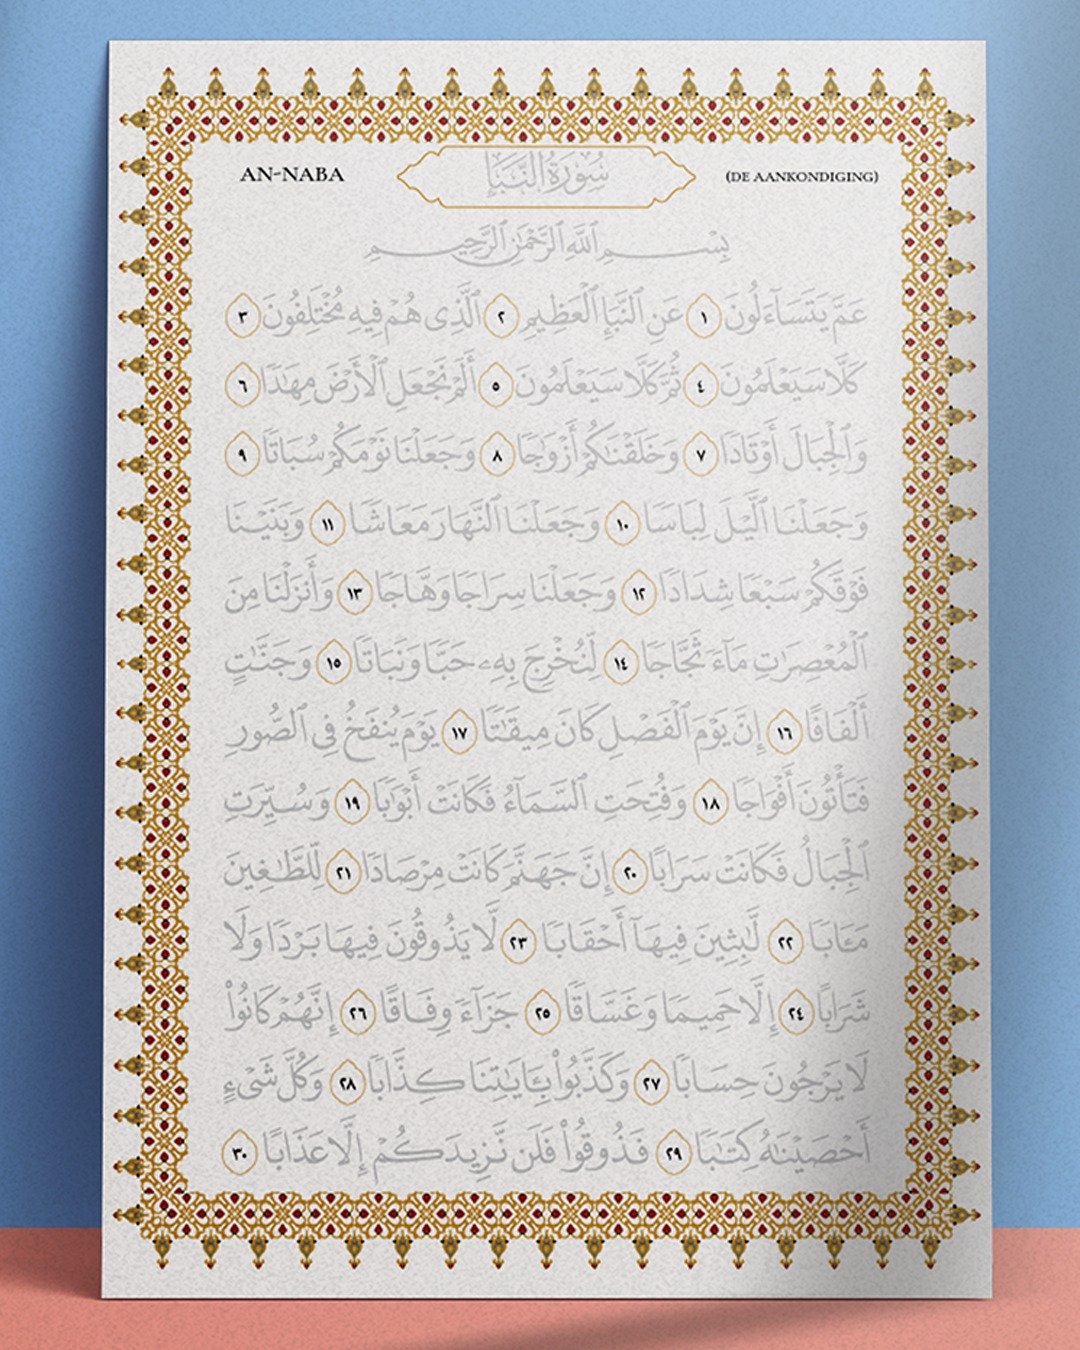 AN-NABA سُورَةُ النَّبَإِ (DE AANKONDIGING)
بِسْمِ ٱللَّهِ ٱلرَّحْمَٰنِ ٱلرَّحِيمِ
عَمَّ يَتَسَآءَلُونَ ١ عَنِ ٱلنَّبَإِ ٱلْعَظِيمِ ٢ ٱلَّذِى هُمْ فِيهِ مُخْتَلِفُونَ ٣
كَلَّا سَيَعْلَمُونَ ٤ ثُمَّ كَلَّا سَيَعْلَمُونَ ٥ أَلَمْ نَجْعَلِ ٱلْأَرْضَ مِهَٰدًا ٦
وَٱلْجِبَالَ أَوْتَادًا ٧ وَخَلَقْنَٰكُمْ أَزْوَٰجًا ٨ وَجَعَلْنَا نَوْمَكُمْ سُبَاتًا ٩
وَجَعَلْنَا ٱلَّيْلَ لِبَاسًا ١٠ وَجَعَلْنَا ٱلنَّهَارَ مَعَاشًا ١١ وَبَنَيْنَا
فَوْقَكُمْ سَبْعًا شِدَادًا ١٢ وَجَعَلْنَا سِرَاجًا وَهَّاجًا ١٣ وَأَنزَلْنَا مِنَ
ٱلْمُعْصِرَٰتِ مَآءً ثَجَّاجًا ١٤ لِّنُخْرِجَ بِهِۦ حَبًّا وَنَبَاتًا ١٥ وَجَنَّٰتٍ
أَلْفَافًا ١٦ إِنَّ يَوْمَ ٱلْفَصْلِ كَانَ مِيقَٰتًا ١٧ يَوْمَ يُنفَخُ فِى ٱلصُّورِ
فَتَأْتُونَ أَفْوَاجًا ١٨ وَفُتِحَتِ ٱلسَّمَآءُ فَكَانَتْ أَبْوَٰبًا ١٩ وَسُيِّرَتِ
ٱلْجِبَالُ فَكَانَتْ سَرَابًا ٢٠ إِنَّ جَهَنَّمَ كَانَتْ مِرْصَادًا ٢١ لِّلطَّٰغِينَ
مَـَٔابًا ٢٢ لَّٰبِثِينَ فِيهَآ أَحْقَابًا ٢٣ لَّا يَذُوقُونَ فِيهَا بَرْدًا وَلَا
شَرَابًا ٢٤ إِلَّا حَمِيمًا وَغَسَّاقًا ٢٥ جَزَآءً وِفَاقًا ٢٦ إِنَّهُمْ كَانُوا۟
لَا يَرْجُونَ حِسَابًا ٢٧ وَكَذَّبُوا۟ بِـَٔايَٰتِنَا كِذَّابًا ٢٨ وَكُلَّ شَىْءٍ
أَحْصَيْنَٰهُ كِتَٰبًا ٢٩ فَذُوقُوا۟ فَلَن نَّزِيدَكُمْ إِلَّا عَذَابًا ٣٠